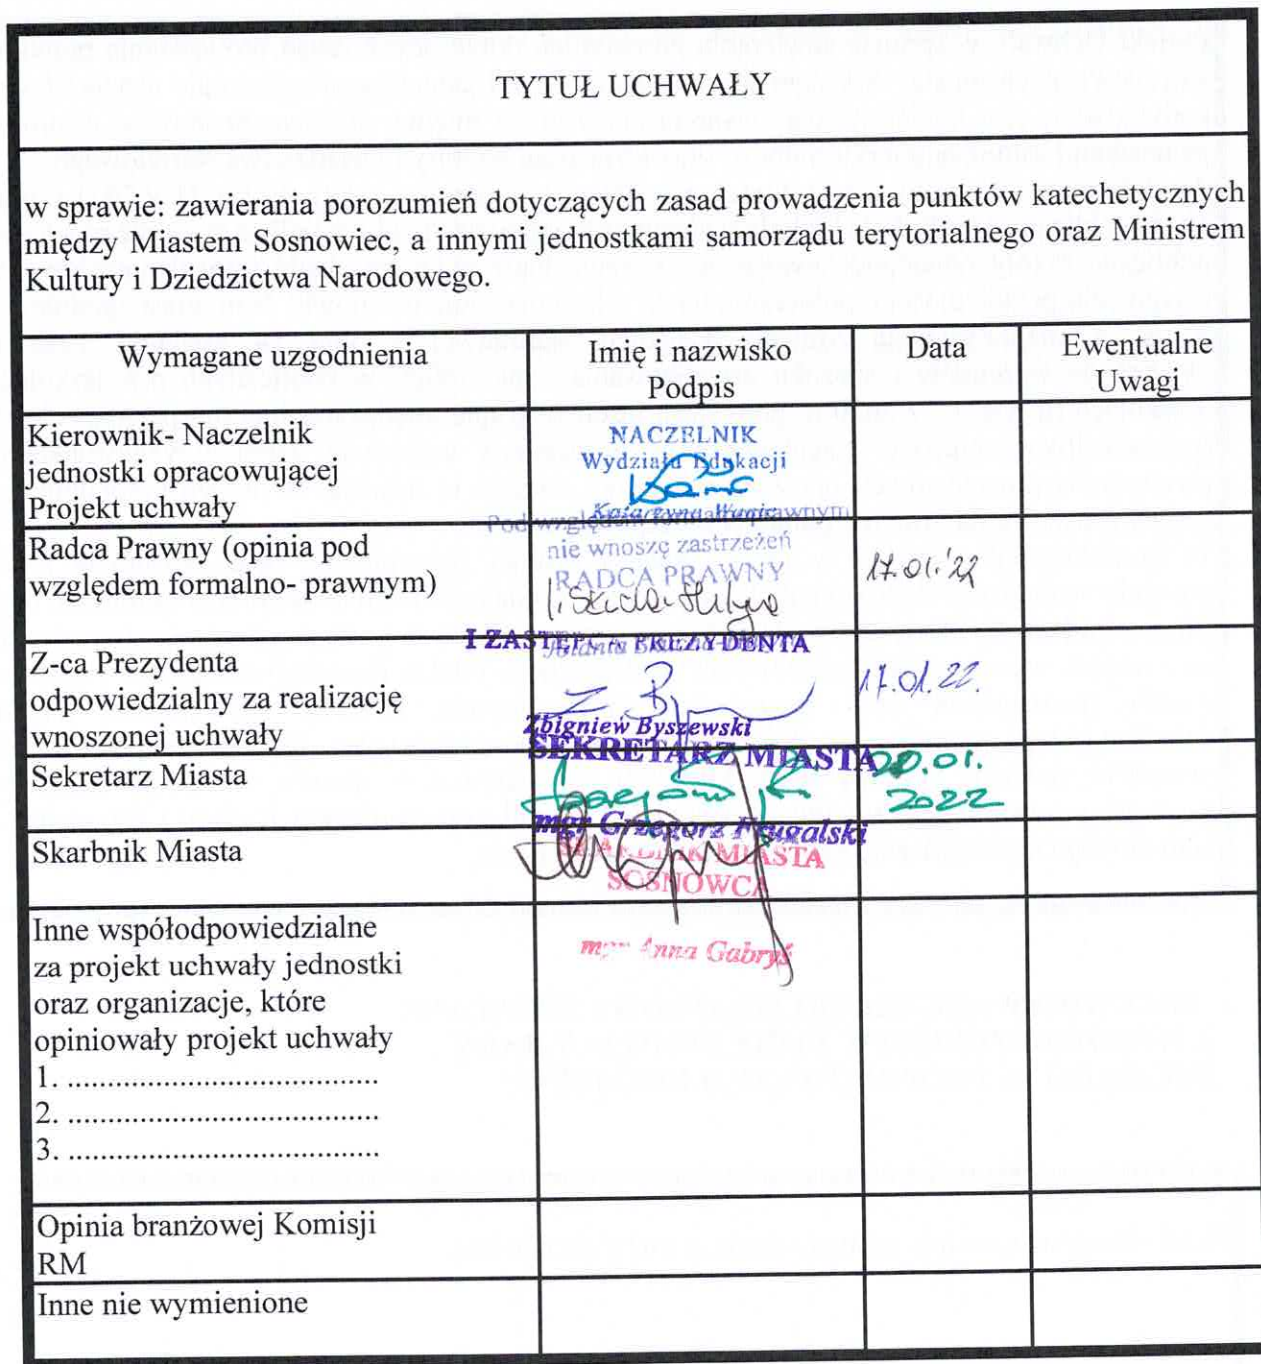 TYTUŁ UCHWAŁY
w sprawie: zawierania porozumień dotyczących zasad prowadzenia punktów katechetycznych
między Miastem Sosnowiec, a innymi jednostkami samorządu terytorialnego oraz Ministrem
Kultury i Dziedzictwa Narodowego.
Wymagane uzgodnienia
Imię i nazwisko
Podpis
Data
Ewentualne
Uwagi
Kierownik- Naczelnik
jednostki opracowującej
Projekt uchwały
NACZELNIK
Wydziału Edukacji
Katarzyna
Radca Prawny (opinia pod
względem formalno- prawnym)
Pod względem formalnoprawnym
nie wnoszę zastrzeżeń
RADCA PRAWNY
Jolanta
17.01.'22
Z-ca Prezydenta
odpowiedzialny za realizację
wnoszonej uchwały
I ZASTĘPCA PREZYDENTA
Zbigniew Byszewski
17.01.22.
Sekretarz Miasta
SEKRETARZ MIASTA
mgr Grzegorz Frugalski
20.01.
2022
Skarbnik Miasta
SKARBNIK MIASTA
SOSNOWCA
mgr Anna Gabryś
Inne współodpowiedzialne
za projekt uchwały jednostki
oraz organizacje, które
opiniowały projekt uchwały
1. ...................................
2. ...................................
3. ...................................
Opinia branżowej Komisji
RM
Inne nie wymienione